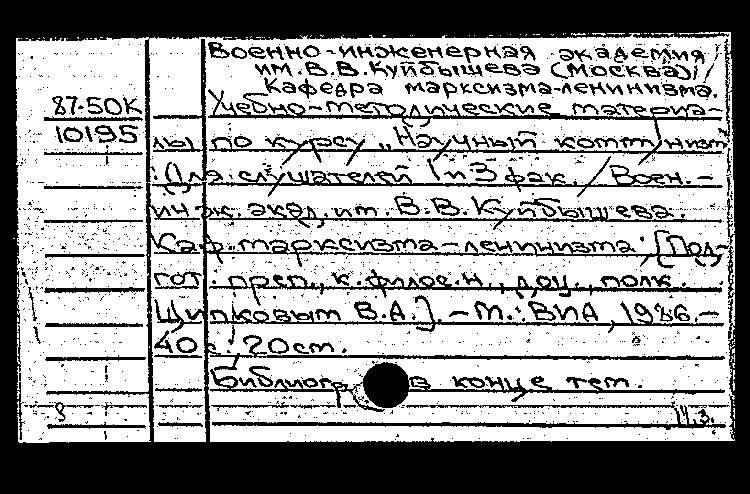 Военно-инженерная академия
им. В.В. Куйбышева (Москва)
Кафедра марксизма-ленинизма.
87-50К Учебно-методические материа-
10195 лы по курсу „Научный коммунизм
: Для слушателей 1 и 3 фак. / Воен.-
инж. акад. им. В.В. Куйбышева.
Каф. марксизма-ленинизма; [Под-
гот. преп., к. филос. н., доц., полк.
Щипковым В.А.]. - М.: ВИА, 1986.-
40 с.; 20 см.
Библиогр. в конце тем.
11.3.